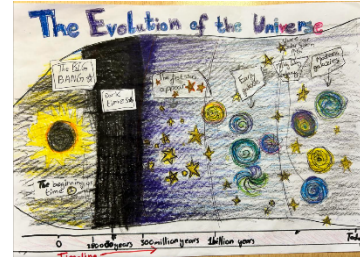 The Evolution of the Universe
The BIG
BANG
Dark
times
The first stars
appear
Early
Modern
galaxies
The beginning of
time
0
300 million years
1 billion years
Timeline